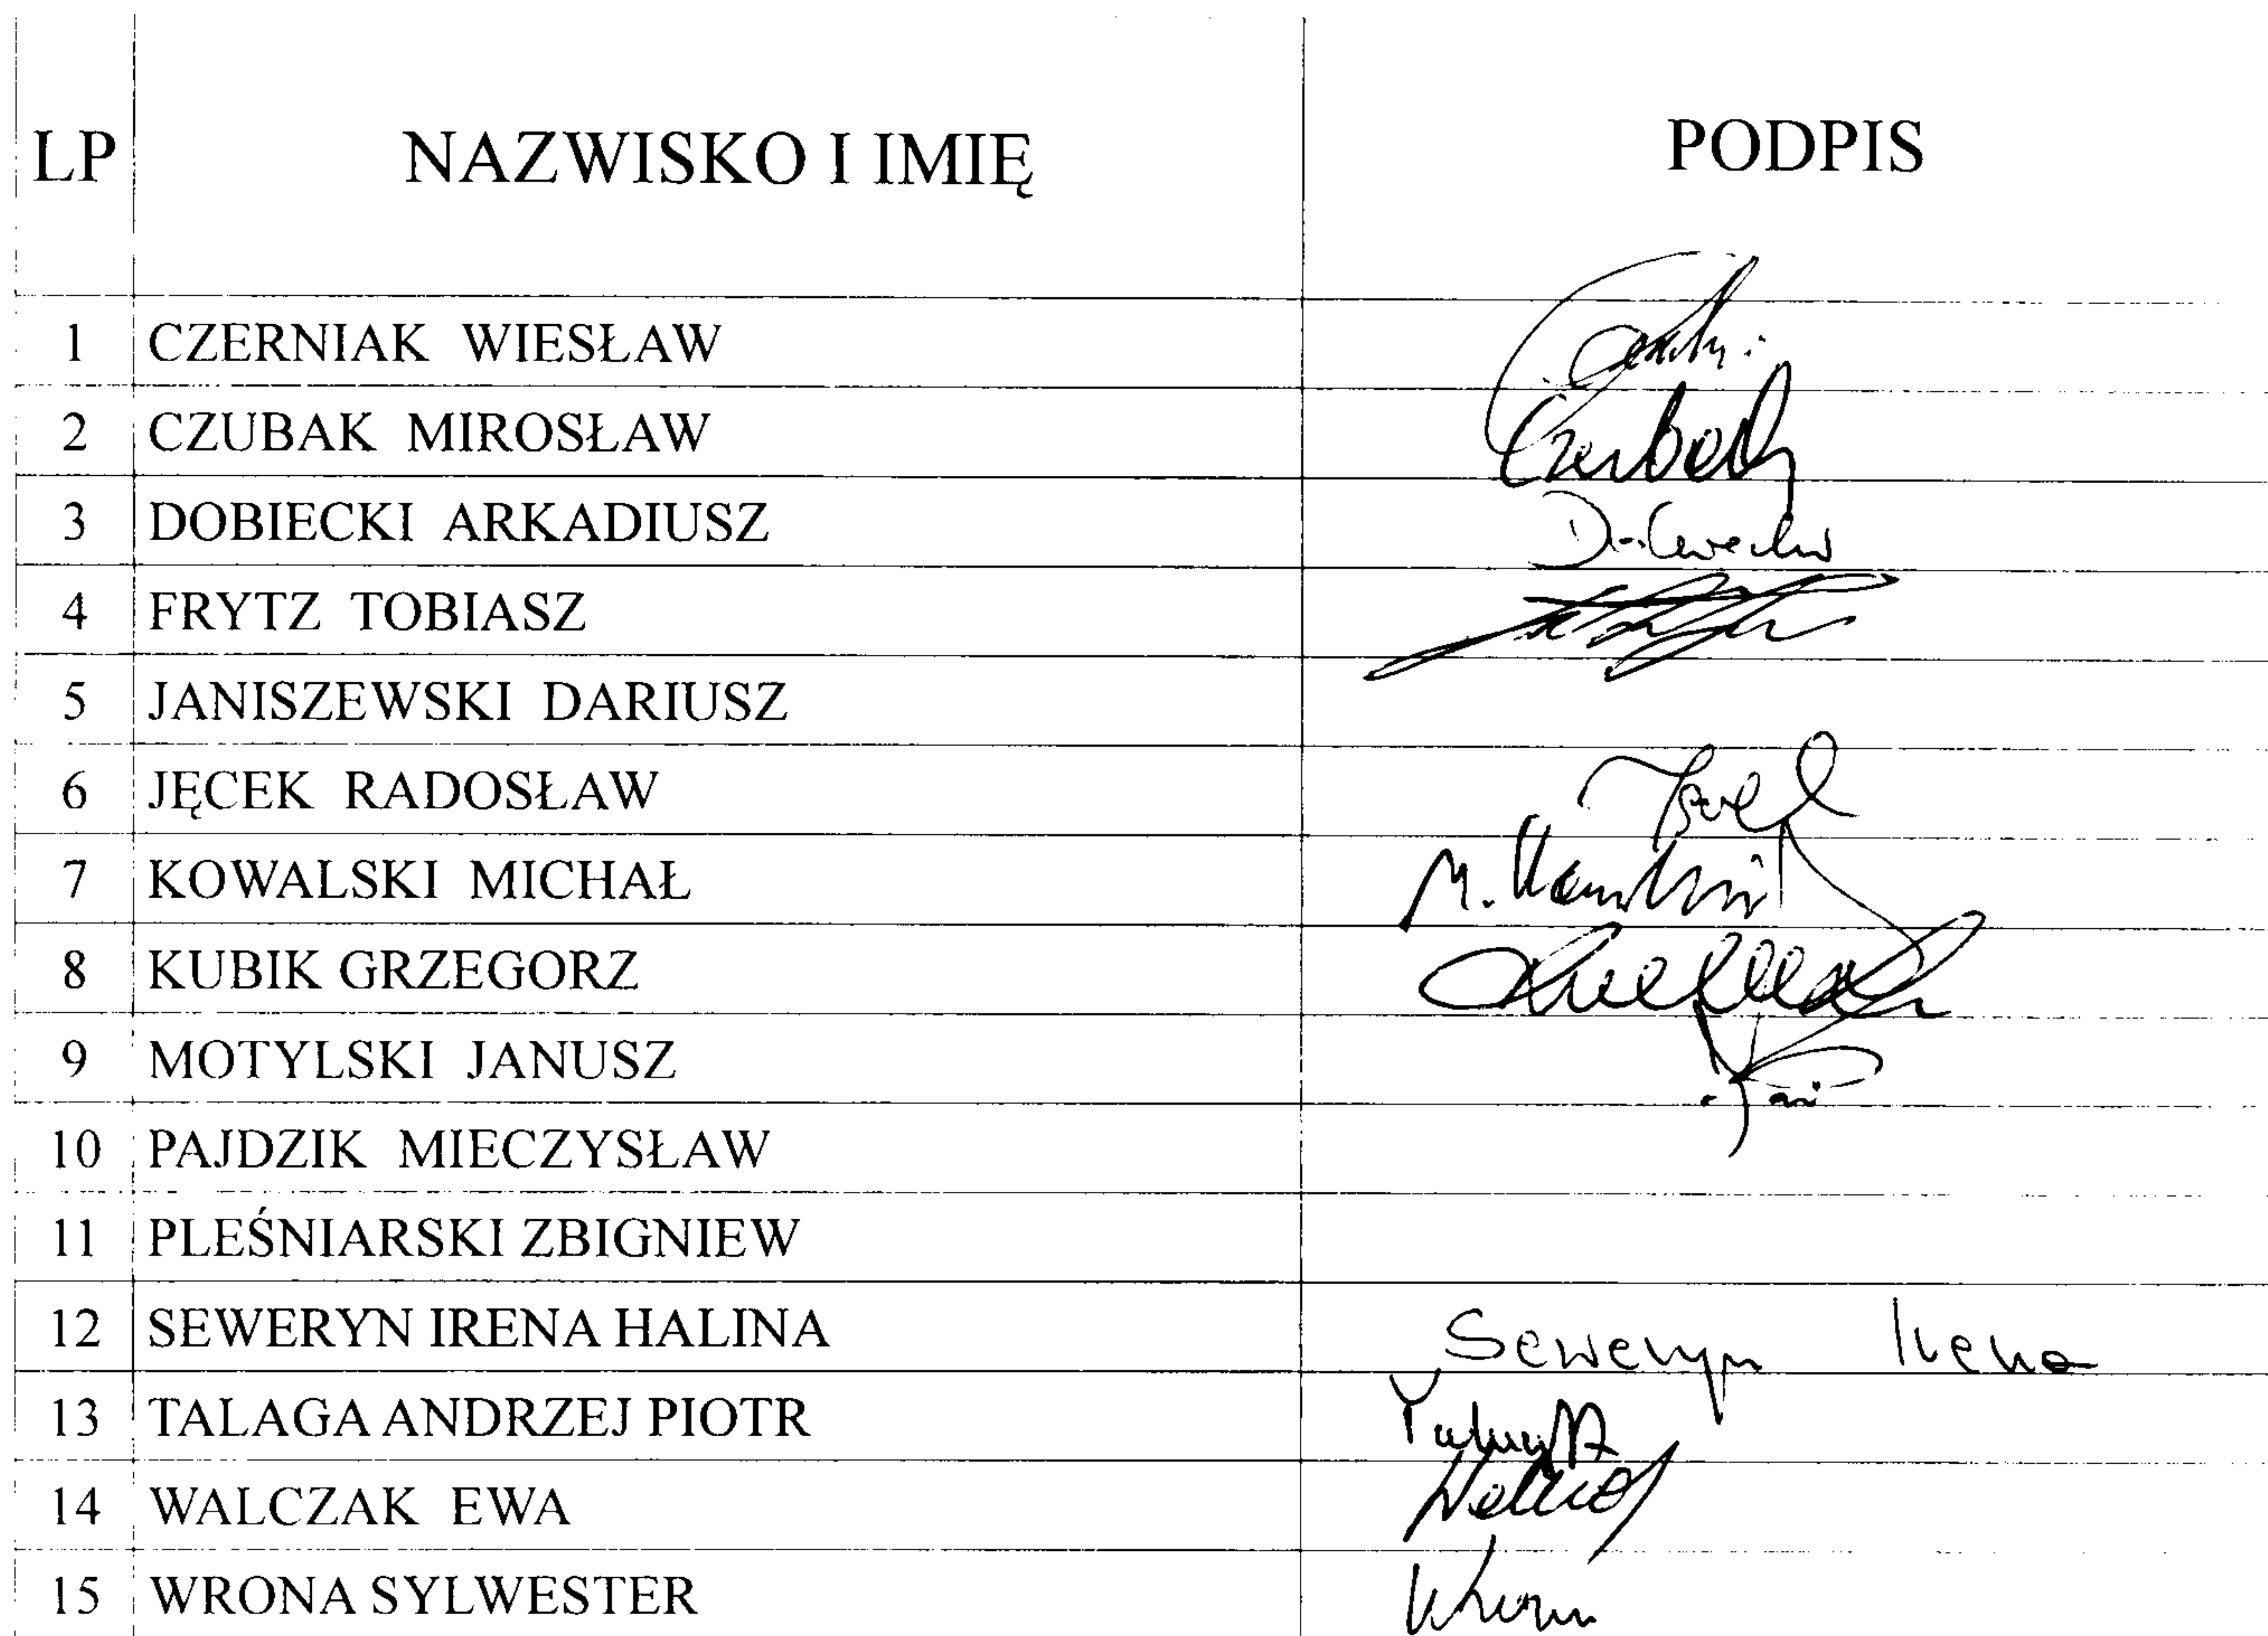 LP NAZWISKO I IMIĘ PODPIS
1 CZERNIAK WIESŁAW
2 CZUBAK MIROSŁAW
3 DOBIECKI ARKADIUSZ
4 FRYTZ TOBIASZ
5 JANISZEWSKI DARIUSZ
6 JĘCEK RADOSŁAW
7 KOWALSKI MICHAŁ M.
8 KUBIK GRZEGORZ
9 MOTYLSKI JANUSZ
10 PAJDZIK MIECZYSŁAW
11 PLEŚNIARSKI ZBIGNIEW
12 SEWERYN IRENA HALINA Seweryn Irena
13 TALAGA ANDRZEJ PIOTR
14 WALCZAK EWA
15 WRONA SYLWESTER Wrona